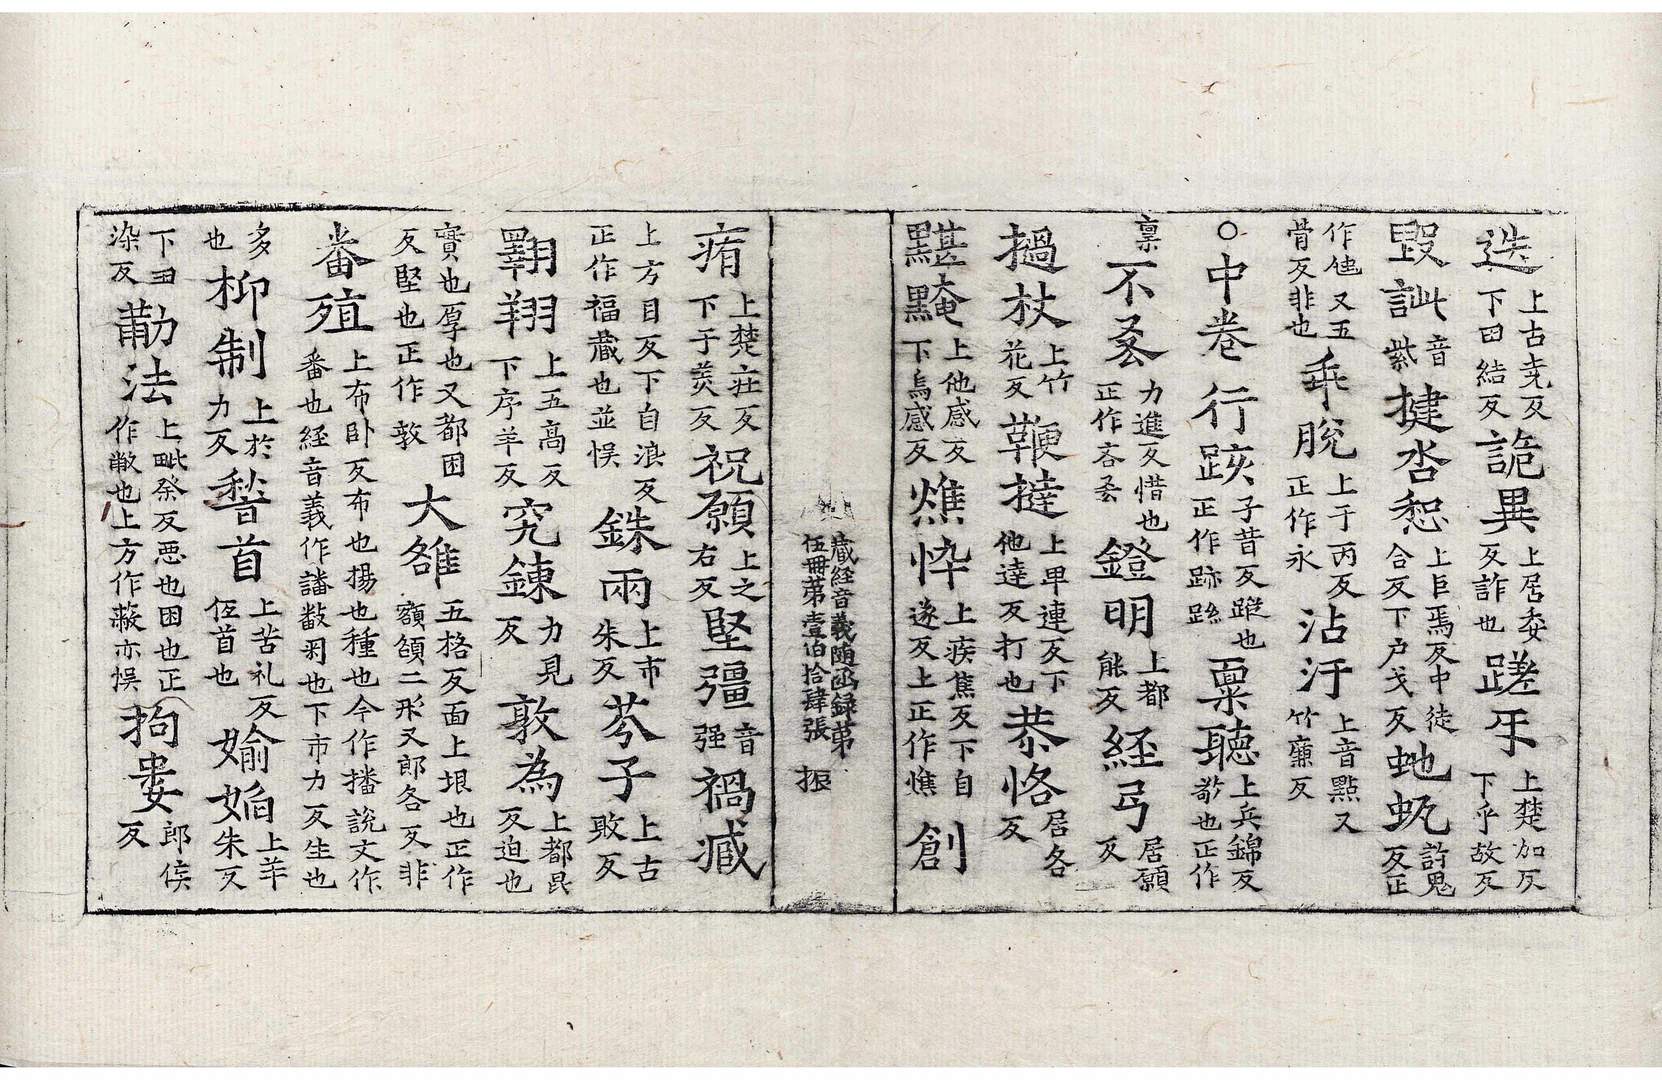 迭上古堯反下田結反詭異上居委反詐也蹉乐上楚加反下乎故反
毀訿音紫揵沓惒上巨焉反中徒合反下户戈反虵蚖許鬼反正
作虺又五骨反非也乖脫上于丙反正作永沾汙上音點又竹廉反
〇中卷行跡子昔反蹤也正作跡跡稟聽上兵錦反敬也正作
稟不吝力進反惜也正作吝吝鐙明上都能反経弓居願反
撾杖上竹花反鞭撻上卑連反下他達反打也恭恪居各反
黮黤上他感反下烏感反燋悴上疾焦反下自遂反上正作憔創
藏経音義随函録第伍冊第壹伯拾肆張 振
痏上楚庄反下于美反祝願上之右反堅彊音强禍臧
上方目反下自浪反正作福藏也並悮銖兩上市朱反芥子上古敗反
翺翔上五高反下序羊反究鍊力見反敦為上都昆反迫也
實也厚也又都困反堅也正作敦大雒五格反面上垠也正作額頟二形又郎各反非
番殖上布卧反布也揚也種也今作播說文作番也経音義作譒敽㓝也下市力反生也
多也抑制上於力反䭫首上苦礼反伍首也婾姤上羊朱反
下田染反勸法上毗祭反悪也困也正作敝也上方作蔽亦悮拘婁郎侯反